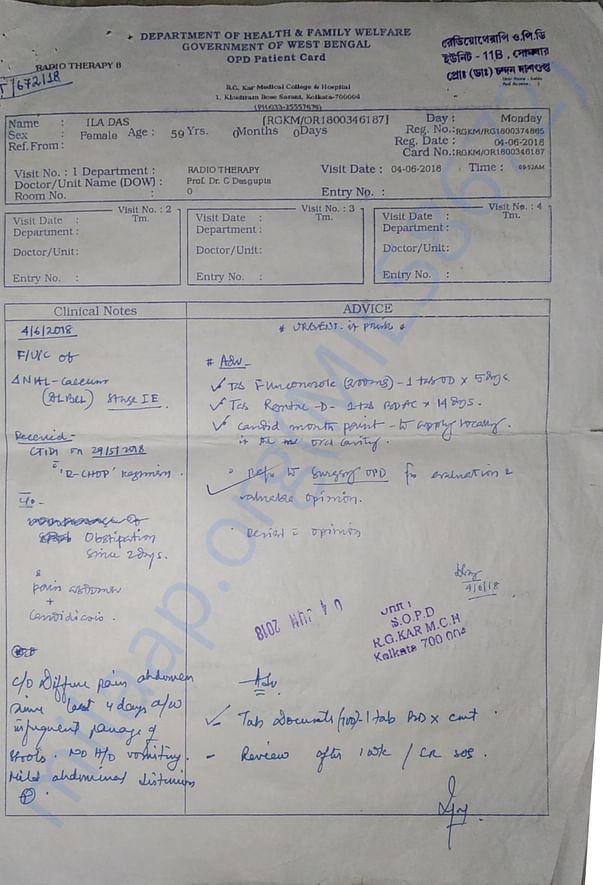 DEPARTMENT OF HEALTH & FAMILY WELFARE
GOVERNMENT OF WEST BENGAL
OPD Patient Card
রেডিয়োথেরাপি ও.পি.ডি
ইউনিট - 11B, সোমবার
প্রোঃ (ডাঃ) চন্দন দাশগুপ্ত
RADIO THERAPY B
672/18
R.G. Kar Medical College & Hospital
1, Khudiram Bose Sarani, Kolkata-700004
(PH)033-25557676)
Name : ILA DAS [RGKM/OR1800346187] Day : Monday
Sex : Female Age : 59 Yrs. 0Months 0Days Reg. No.:RGKM/RG1800374865
Ref.From : Reg. Date : 04-06-2018
Card No.:RGKM/OR1800346187
Visit No. : 1 Department : RADIO THERAPY Visit Date : 04-06-2018 Time : 09:52AM
Doctor/Unit Name (DOW) : Prof. Dr. C Dasgupta
Room No. : 0 Entry No. :
Visit No. : 2 Visit No. : 3 Visit No. : 4
Visit Date : Tm. Visit Date : Tm. Visit Date : Tm.
Department : Department : Department :
Doctor/Unit: Doctor/Unit: Doctor/Unit:
Entry No. : Entry No. : Entry No. :
Clinical Notes ADVICE
4/6/2018
* URGENT
F/U/C of
Δ NHL-Caecum
(DLBCL) Stage IE
Received-
CT1D1 on 29/5/2018
'R-CHOP' Regimen.
C/o-
Obstipation
since 2days.
&
pain abdomen
+
Candidiasis.
# Adv-
Tab Fluconazole - 1 tab OD x 5 days.
Tab - D - 1 tab BDAC x 14 days.
Candid mouth paint - to apply locally
in the oral cavity.
Refer to Surgery OPD for evaluation &
valuable opinion.
opinion
4/6/18
04 JUN 2018
UNIT I
S.O.P.D
R.G.KAR M.C.H
Kolkata 700 004
C/O Diffuse pain abdomen
since last 4 days a/w
infrequent passage of
stools. NO H/O vomiting.
Mild abdominal distension
Adv
Tab 1 tab BD x cont.
- Review after 1 wk / SOS.
milaap.org/MILE